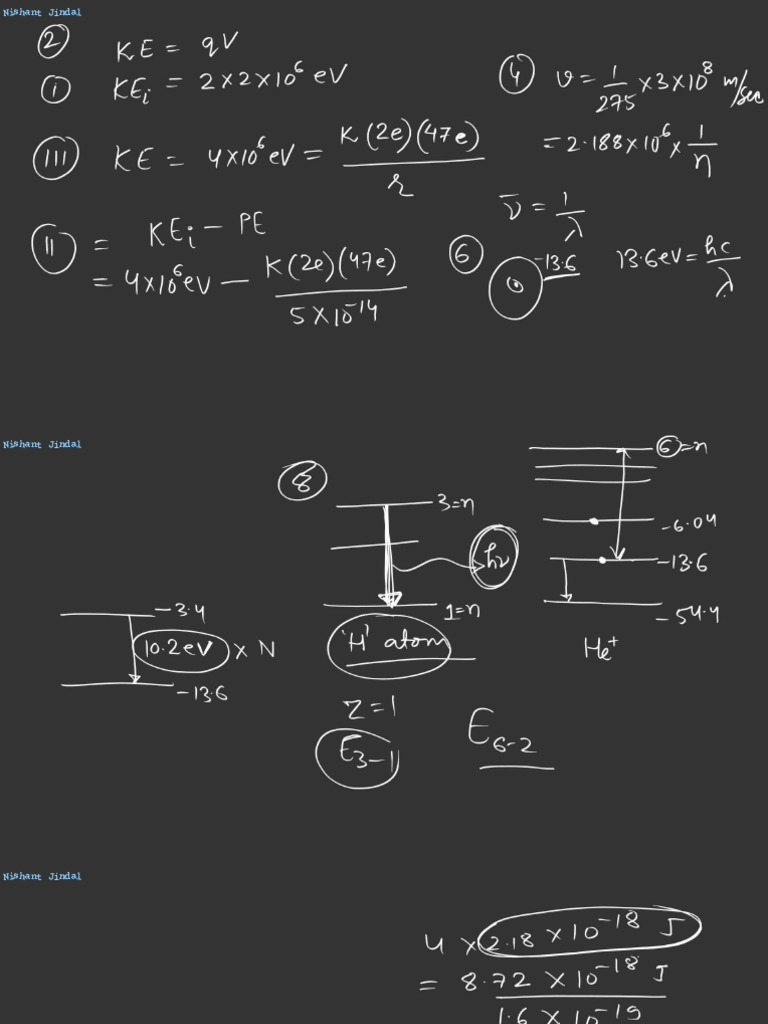 Nishant Jindal
② KE = qV
① KEi = 2×2×10⁶ eV
③ KE = 4×10⁶eV = K(2e)(47e) / r
⑪ = KEi − PE
= 4×10⁶eV − K(2e)(47e) / 5×10⁻¹⁴
④ v = 1/275 ×3×10⁸ m/sec
= 2.188×10⁶ × 1/n
ν̄ = 1/λ
⑥ -13.6 13.6eV = hc/λ
Nishant Jindal
-3.4
10.2eV × N
-13.6
⑧
3=n
hν
1=n
'H' atom
Z=1
E3-1
6=n
-6.04
-13.6
-54.4
He⁺
E6-2
Nishant Jindal
4 × 2.18 × 10⁻¹⁸ J
= 8.72 × 10⁻¹⁸ J
1.6 × 10⁻¹⁹